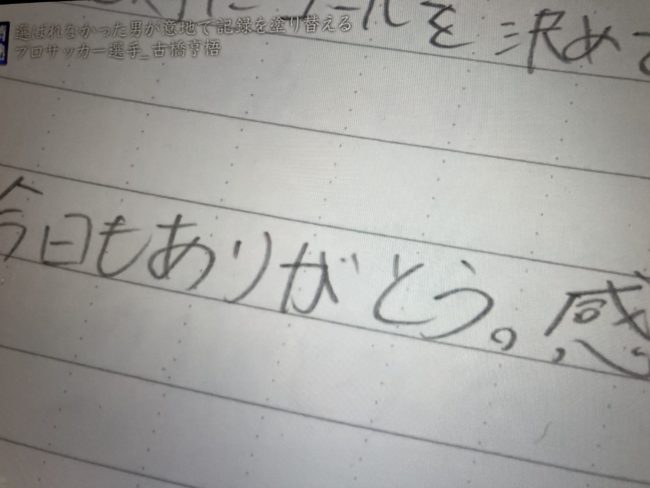 選ばれなかった男が敵地で記録を塗り替える
プロサッカー選手_古橋亨梧
ールを決めて
今日もありがとう。感